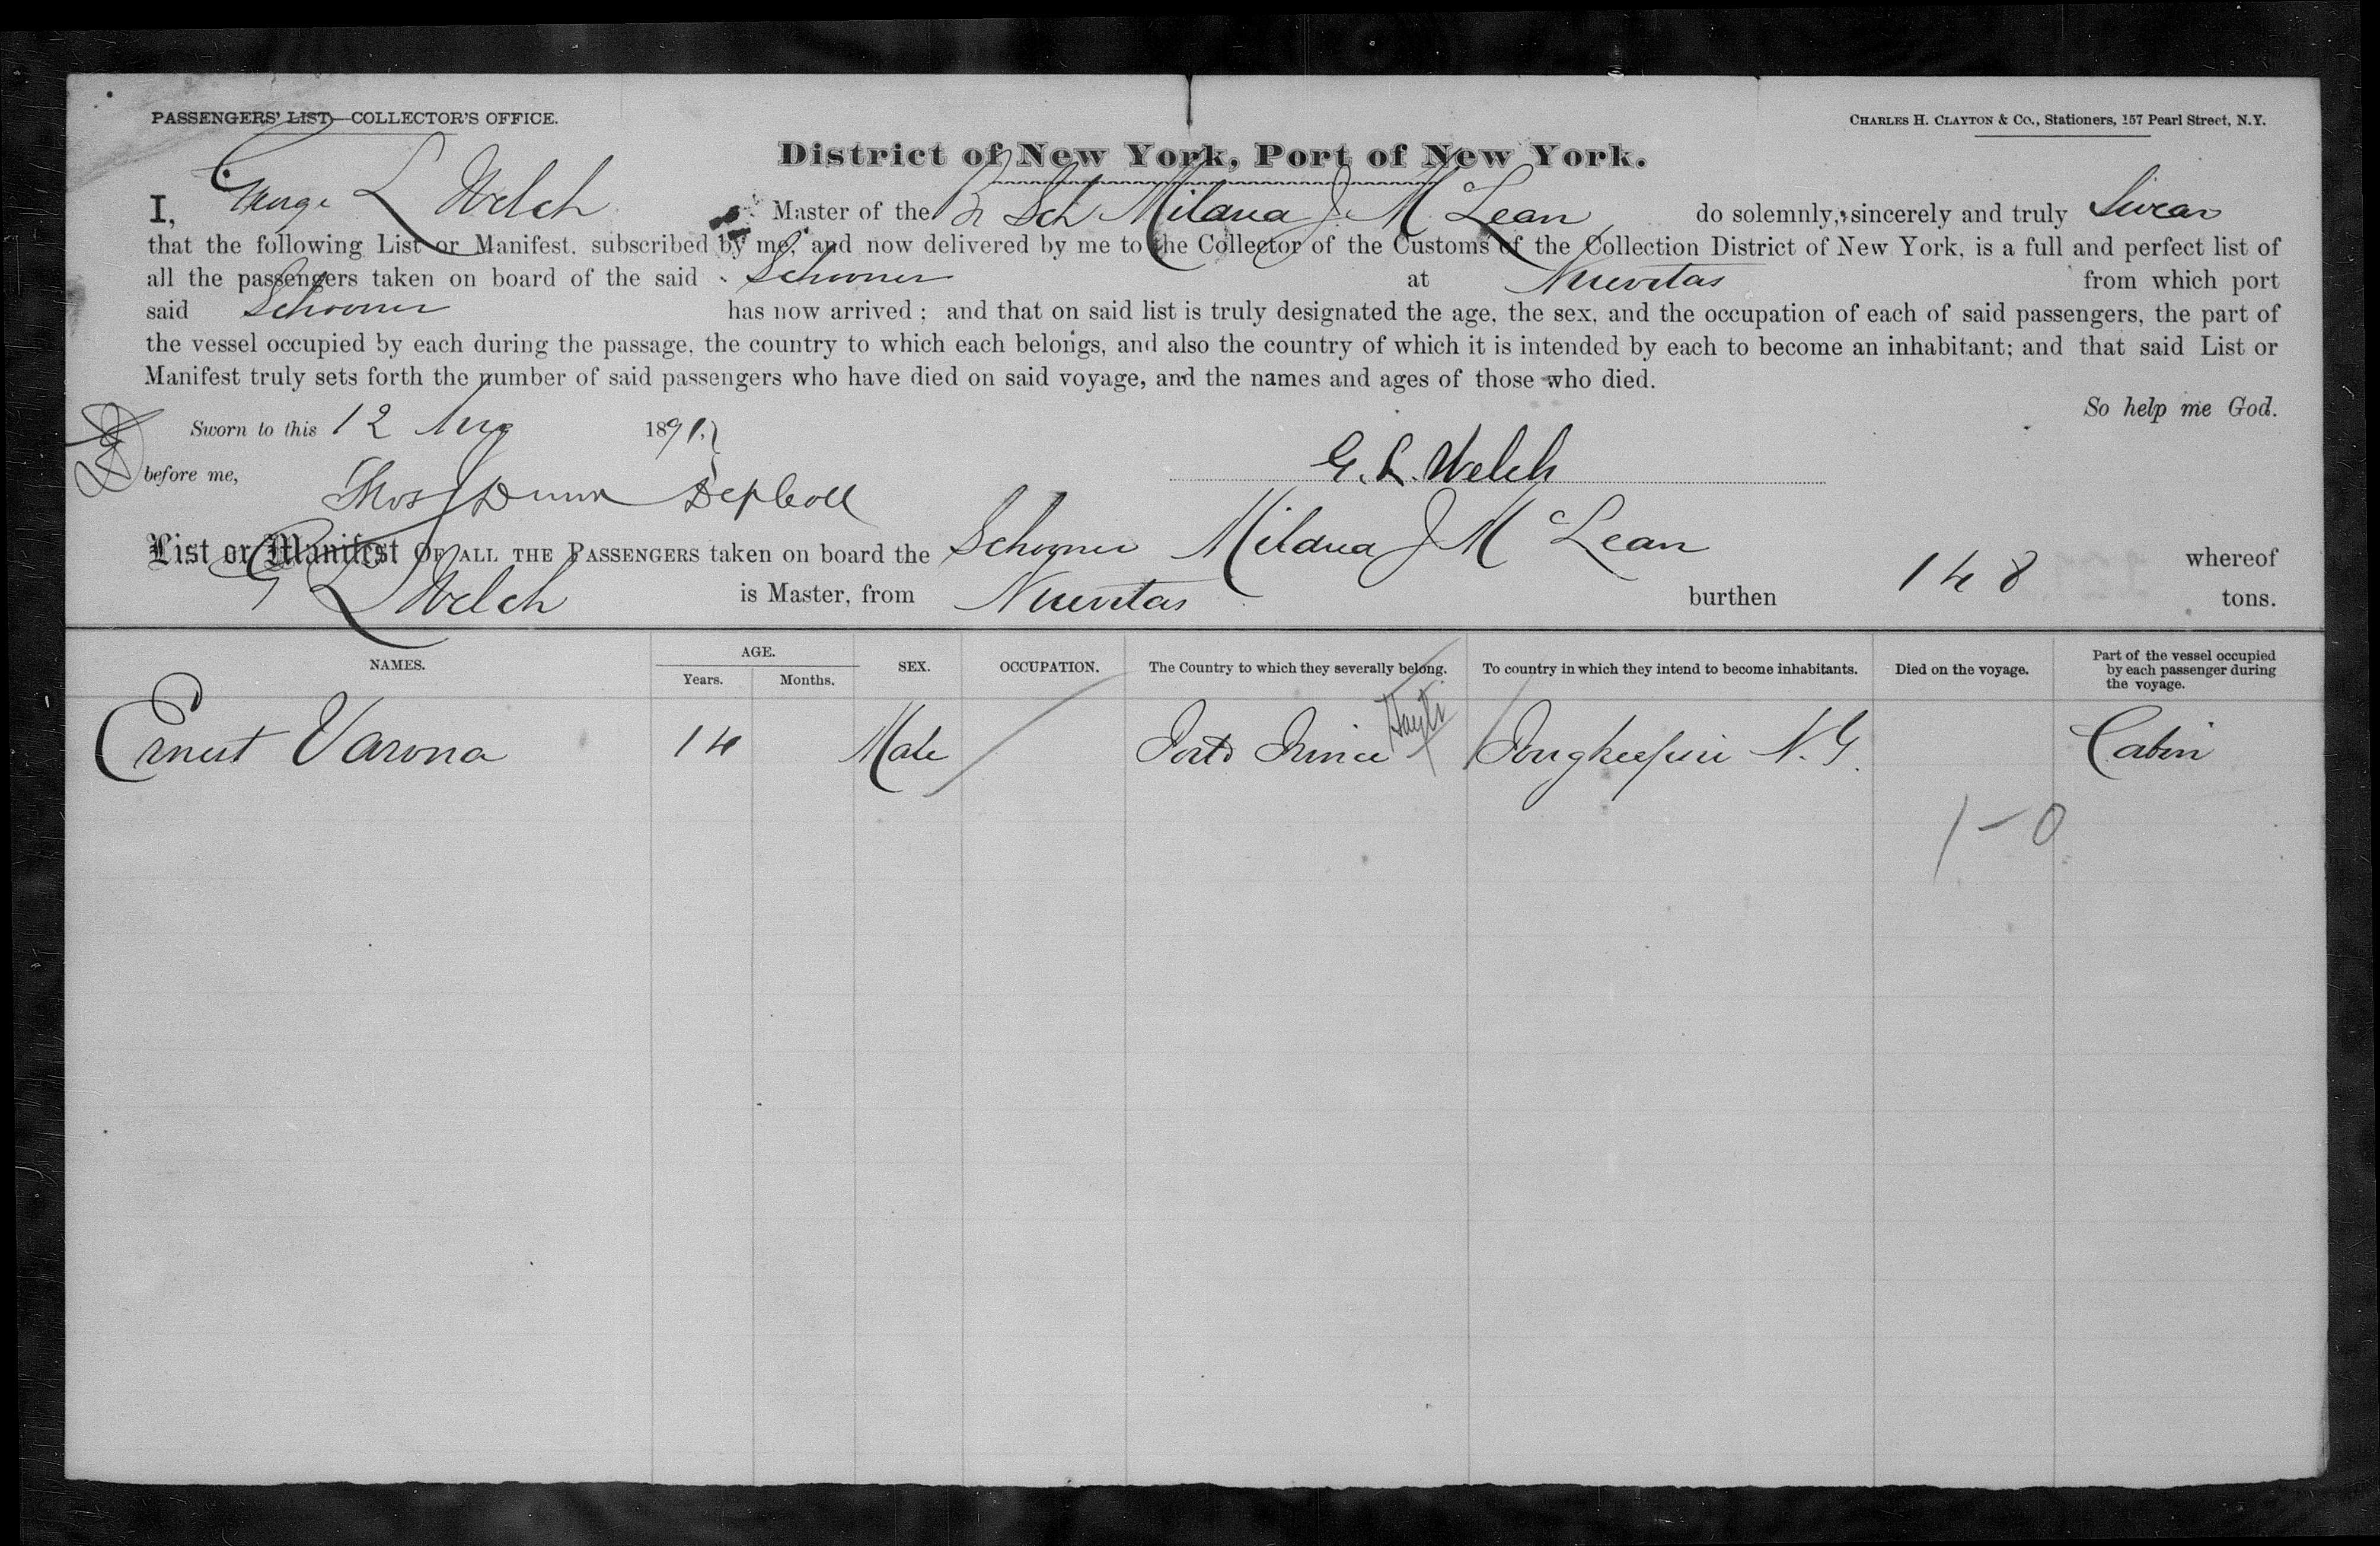 PASSENGERS' LIST—COLLECTOR'S OFFICE.
CHARLES H. CLAYTON & Co., Stationers, 157 Pearl Street, N.Y.
District of New York, Port of New York.
I, George L Welch Master of the Br Sch Mildua J. McLean do solemnly, sincerely and truly Swear
that the following List or Manifest, subscribed by me, and now delivered by me to the Collector of the Customs of the Collection District of New York, is a full and perfect list of
all the passengers taken on board of the said Schooner at Nuevitas from which port
said Schooner has now arrived ; and that on said list is truly designated the age, the sex, and the occupation of each of said passengers, the part of
the vessel occupied by each during the passage, the country to which each belongs, and also the country of which it is intended by each to become an inhabitant; and that said List or
Manifest truly sets forth the number of said passengers who have died on said voyage, and the names and ages of those who died.
So help me God.
Sworn to this 12 Aug 1891.
before me,
Thos J Dunn Dep Coll
G. L. Welch
List or Manifest OF ALL THE PASSENGERS taken on board the Schooner Mildua J McLean whereof
G L Welch is Master, from Nuevitas burthen 148 tons.
NAMES. AGE. Years. Months. SEX. OCCUPATION. The Country to which they severally belong. To country in which they intend to become inhabitants. Died on the voyage. Part of the vessel occupied by each passenger during the voyage.
Ernest Varona 14 Male Porto Prince Hayti Poughkeepsie N.Y. Cabin
1 – 0